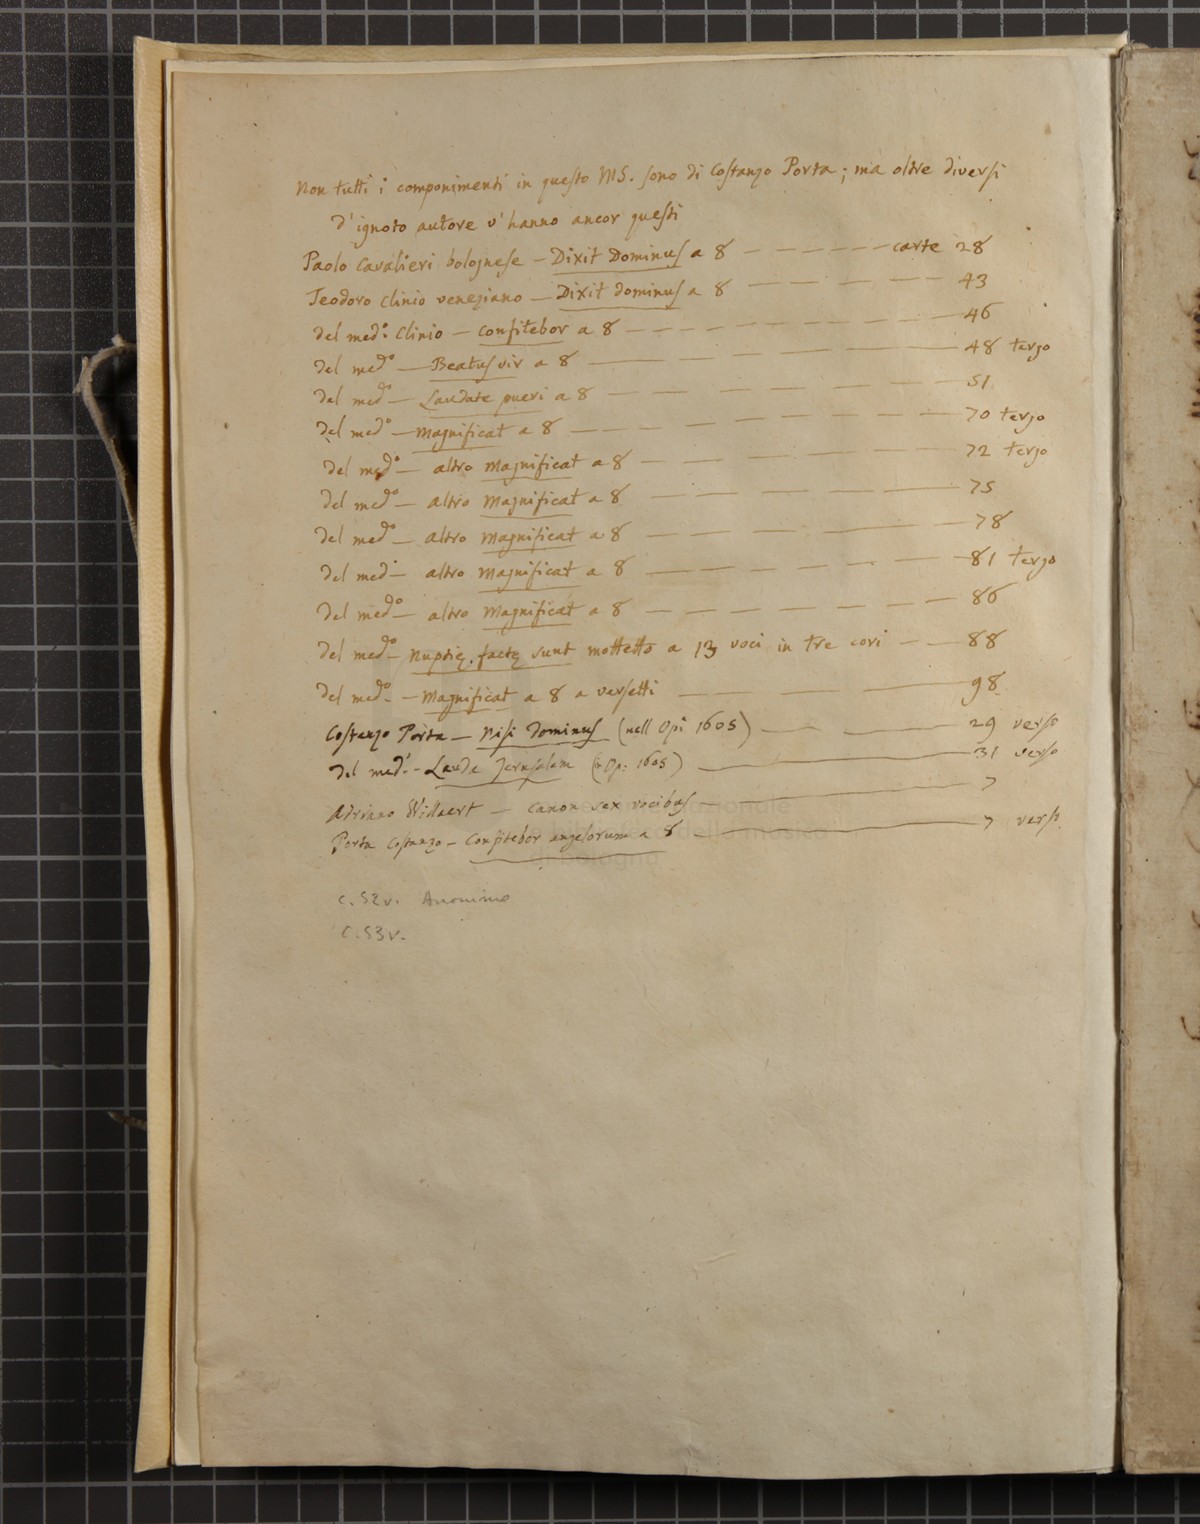 Non tutti i componimenti in questo MS. sono di Costanzo Porta; ma oltre diversi
d'ignoto autore v'hanno ancor questi
Paolo Cavalieri bolognese — Dixit Dominus a 8 — — — — — — carte 28
Teodoro Clinio veneziano — Dixit dominus a 8 — — — — — 43
del med.o Clinio — Confitebor a 8 — — — — — 46
del med.o — Beatus vir a 8 — — — — 48 tergo
del med.o — Laudate pueri a 8 — — — — 51
del med.o — Magnificat a 8 — — — — 70 tergo
del med.o — altro Magnificat a 8 — — — — 72 tergo
del med.o — altro Magnificat a 8 — — — — 75
del med.o — altro Magnificat a 8 — — — — 78
del med. — altro Magnificat a 8 — — — — 81 tergo
del med.o — altro Magnificat a 8 — — — — 86
del med.o — Nuptię factę sunt mottetto a 13 voci in tre cori — — 88
del med.o — Magnificat a 8 a versetti — — — 98
Costanzo Porta — Nisi Dominus (nell Opi 1605) — — 29 verso
del med.o - Lauda Jerusalem (in Op: 1605) — 31 verso
Adriano Willaert — Canon sex vocibus — 7
Porta Costanzo — Confitebor angelorum a 8 — 7 verso
c. 52v. Anonimo
c. 53v.